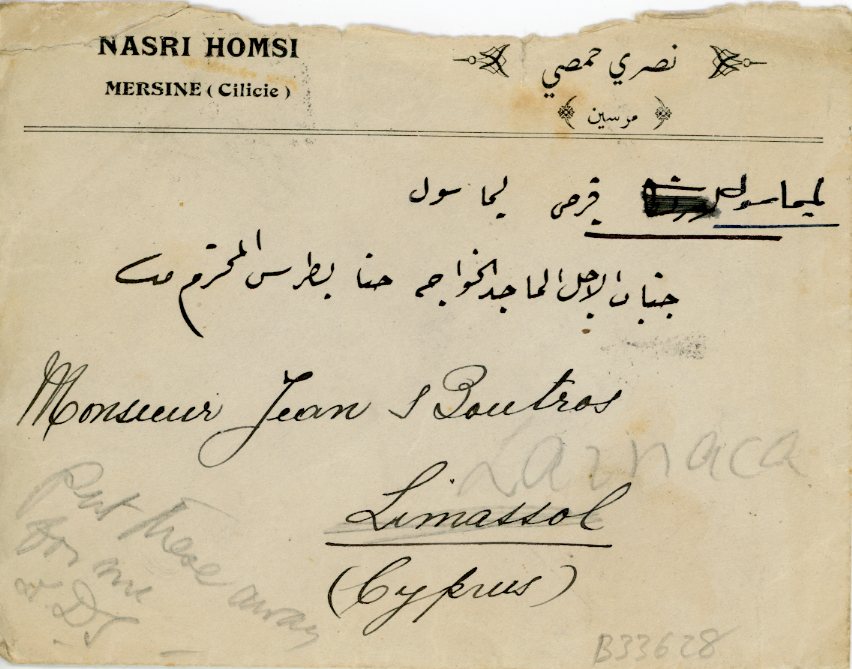 NASRI HOMSI
MERSINE (Cilicie)
نصري حمصي
مرسين
ليماسول قبرص ليماسول
جناب الاجل الماجد الخواجه حنا بطرس المحترم
Monsieur Jean S Boutros
Larnaca
Limassol
(Cyprus)
Put these away
for me
B33628